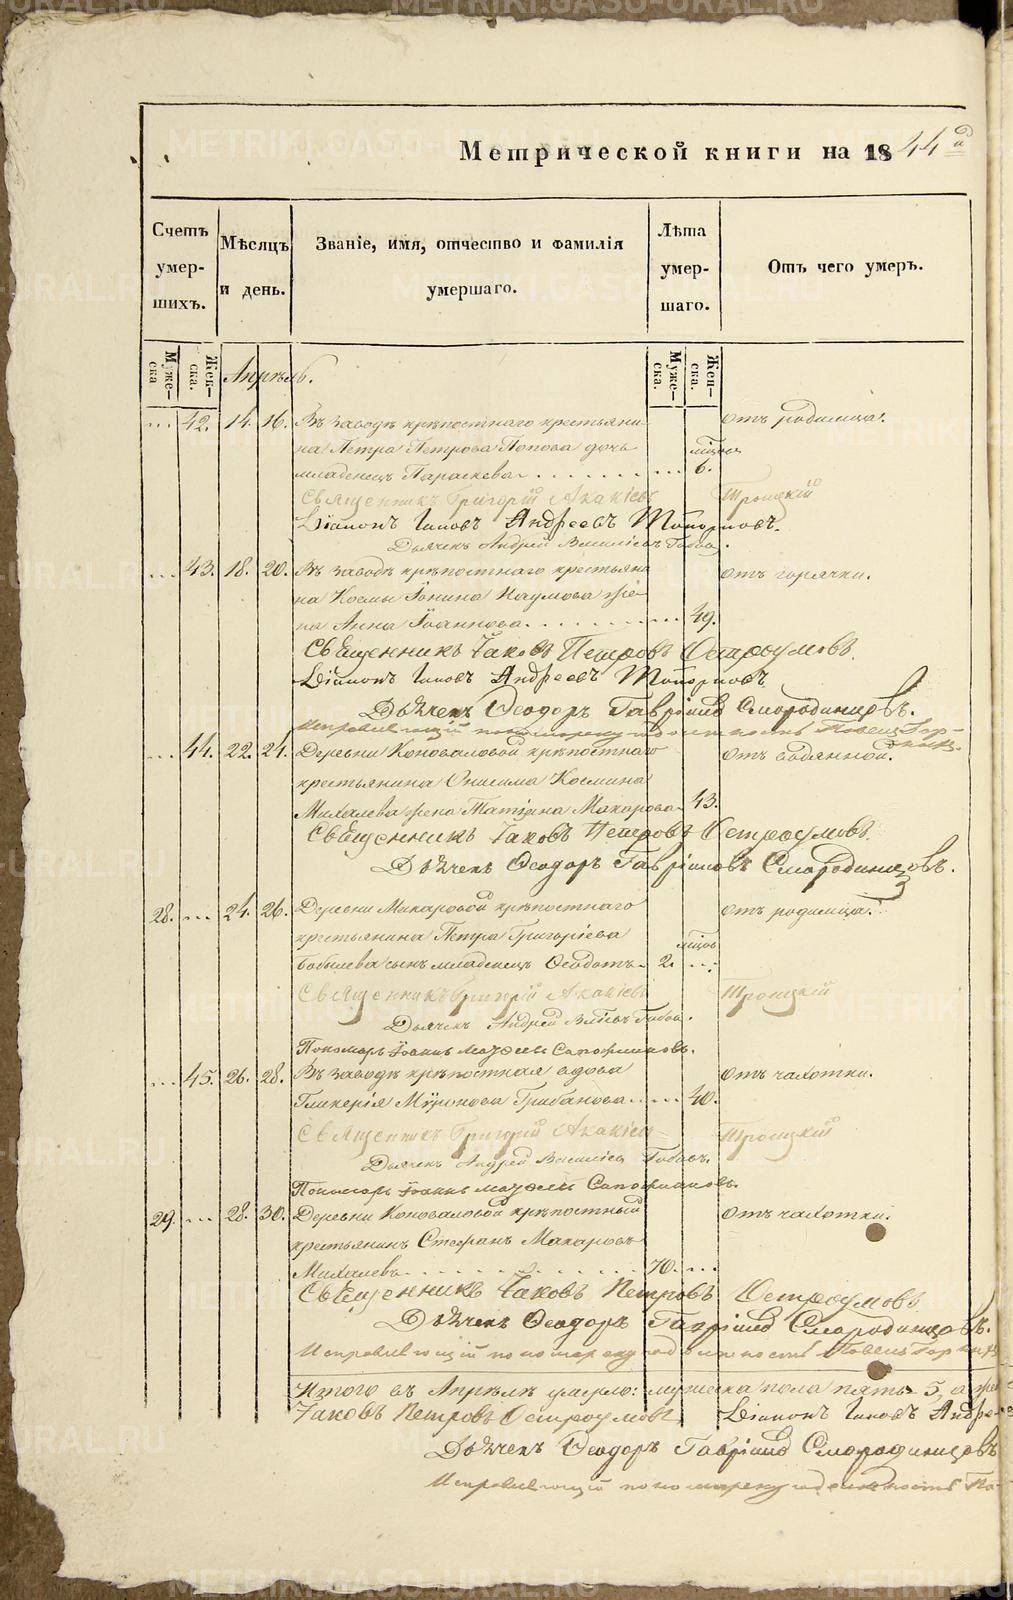 Метрической книги на 1844 й
Счетъ умер-шихъ.
Мѣсяцъ и день.
Званіе, имя, отчество и фамилія умершаго.
Лѣта умер-шаго.
Отъ чего умеръ.
Муже-ска
Жен-ска.
Апрѣль.
Муже-ска.
Жен-ска.
... 42. 14. 16. Въ заводѣ крѣпостнаго крестьяни- отъ родимца.
на Петра Петрова Попова дочь мѣцов
младенецъ Параскева 6.
Священникъ Григорій Акакіевъ Троицкій
Діаконъ Іаковъ Андреевъ Топорковъ.
Дьячекъ Андрей Василіевъ
... 43. 18. 20. Въ заводѣ крѣпостнаго крестьяни отъ горячки.
на Космы Іонина Наумова же
на Анна Іоаннова 49.
Священникъ Іаковъ Петровъ Остроумовъ.
Діаконъ Іаковъ Андреевъ Топорковъ
Дьячекъ Ѳеодоръ Гавріиловъ Смородинцовъ.
Исправляющій пономарскую должность
... 44. 22. 24. Деревни Коноваловой крѣпостнаго отъ водянной.
крестьянина Онисима Космина
Михалева жена Татіяна Макарова 43.
Священникъ Іаковъ Петровъ Остроумовъ.
Дьячекъ Ѳеодоръ Гавріиловъ Смородинцовъ.
28. ... 24. 26. Деревни Макаровой крѣпостнаго отъ родимца.
крестьянина Петра Григоріева мѣцов
Бобылева сынъ младенецъ Ѳеодотъ 2. ...
Священникъ Григорій Акакіевъ Троицкій
Дьячекъ Андрей
Пономарь Іоаннъ Сапожниковъ.
... 45. 26. 28. Въ заводѣ крѣпостная вдова отъ чахотки.
Гликерія Мѵронова Грибанова 40.
Священникъ Григорій Акакіевъ Троицкій
Дьячекъ Андрей Василіевъ
Пономарь Іоаннъ Сапожниковъ.
29. ... 28. 30. Деревни Коноваловой крѣпостный отъ чахотки.
крестьянинъ Стефанъ Макаровъ
Михалевъ 70. ...
Священникъ Іаковъ Петровъ Остроумовъ
Дьячекъ Ѳеодоръ Гавріиловъ Смородинцовъ.
Исправляющій пономарскую должность
Итого въ Апрѣлѣ умерло: мужеска пола пять 5, а же
Іаковъ Петровъ Остроумовъ Діаконъ Іаковъ Андре
Дьячекъ Ѳеодоръ Гавріиловъ Смородинцовъ
Исправляющій пономарскую должность
METRIKI.GASO-URAL.RU